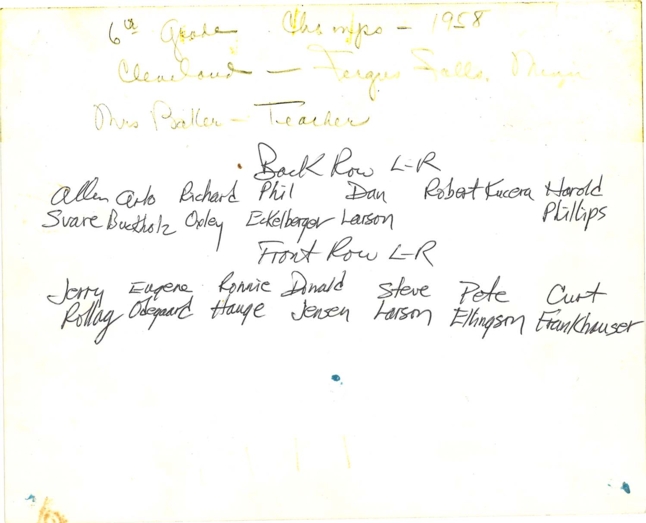 6th Grade Champs - 1958
Cleveland - Fergus Falls, Minn
Mrs Baller - Teacher
Back Row L-R
Allen Arlo Richard Phil Dan Robert Kucera Harold
Svare Buchholz Oxley Eckelberger Larson Phillips
Front Row L-R
Jerry Eugene Ronnie Donald Steve Pete Curt
Rollag Odegaard Hauge Jensen Larson Ellingson Frankhauser